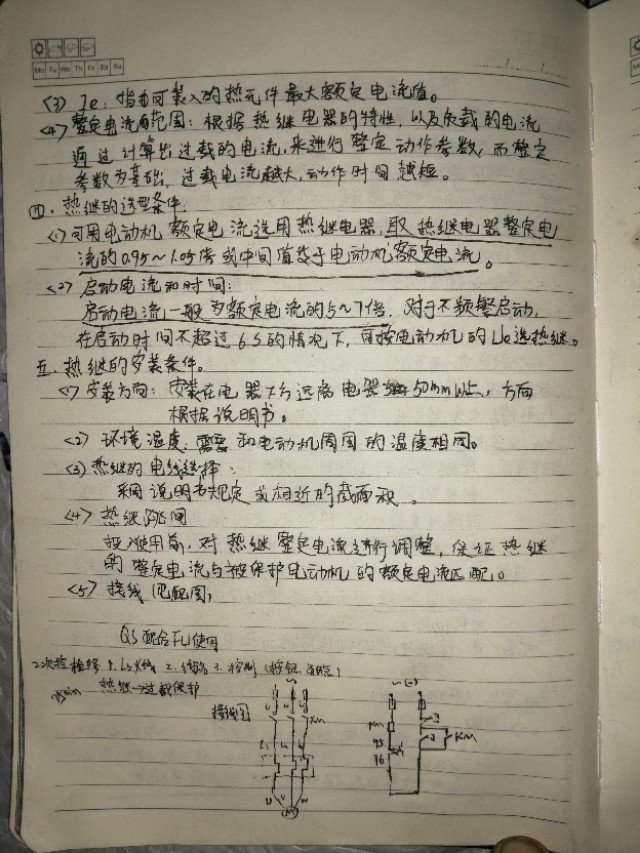 Mo Tu We Th Fr Sa Su
<3> Ie：指可装入的热元件最大额定电流值。
<4> 整定电流范围：根据热继电器的特性，以及负载的电流
通过计算出过载的电流，来进行整定动作参数，而整定
参数为基础，过载电流越大，动作时间越短。
四、热继的选型条件
<1>可用电动机额定电流选用热继电器，取热继电器整定电
流的0.95~1.05倍或中间值等于电动机额定电流。
<2> 启动电流和时间：
启动电流一般为额定电流的5~7倍，对于不频繁启动，
在启动时间不超过6S的情况下，可按电动机的Ue选热继。
五、热继的安装条件。
<1>安装方向：安装在电器下方远离电器50mm以上，方向
根据说明书。
<2> 环境温度：需要和电动机周围的温度相同。
<3>热继的电线选择：
采用说明书规定或相近的截面积。
<4> 热继
投入使用前，对热继整定电流进行调整，保证热继
的整定电流与被保护电动机的额定电流匹配。
<5> 接线（见配图）
QS 配合FU使用
热继→过载保护
接线图
KM
KM
KM
95
96
U V W
M